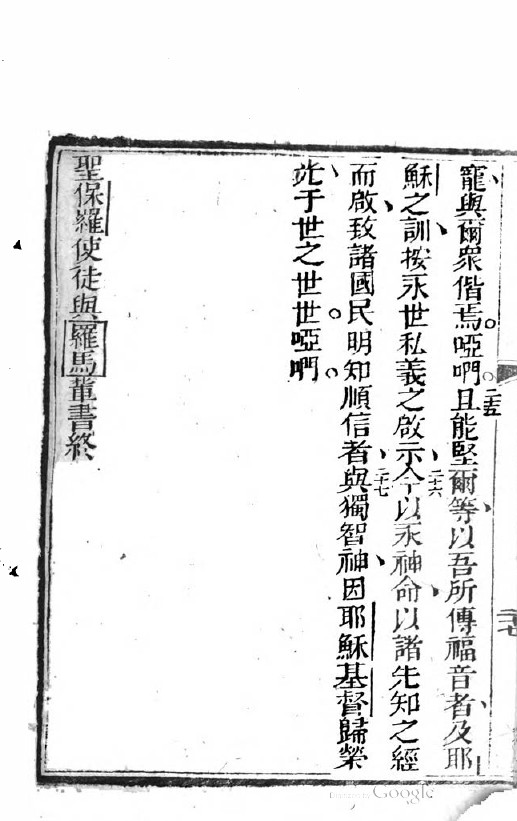 寵與爾衆偕焉。啞㖿。二五且能堅爾等以吾所傳福音者及耶
穌之訓、按永世私義之啟示、二六今以永神命、以諸先知之經
而啟、致諸國。民明知順信者、二七與獨智神、因耶穌基督歸榮
光、于世之世世。啞㖿。
聖保羅使徒與羅馬軰書終
二十七
Google